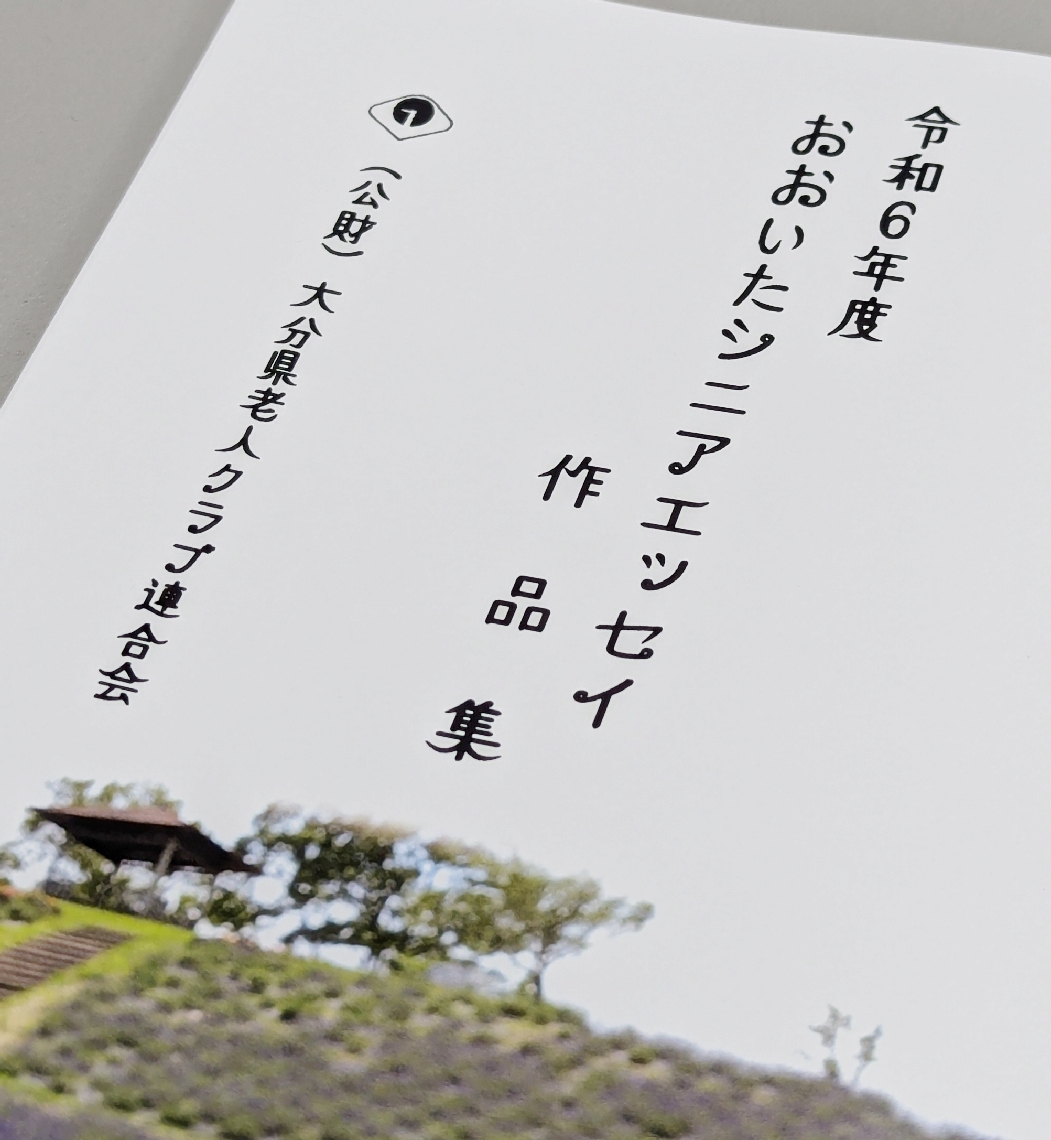 令和6年度
おおいたシニアエッセイ
作品集
（公財）大分県老人クラブ連合会